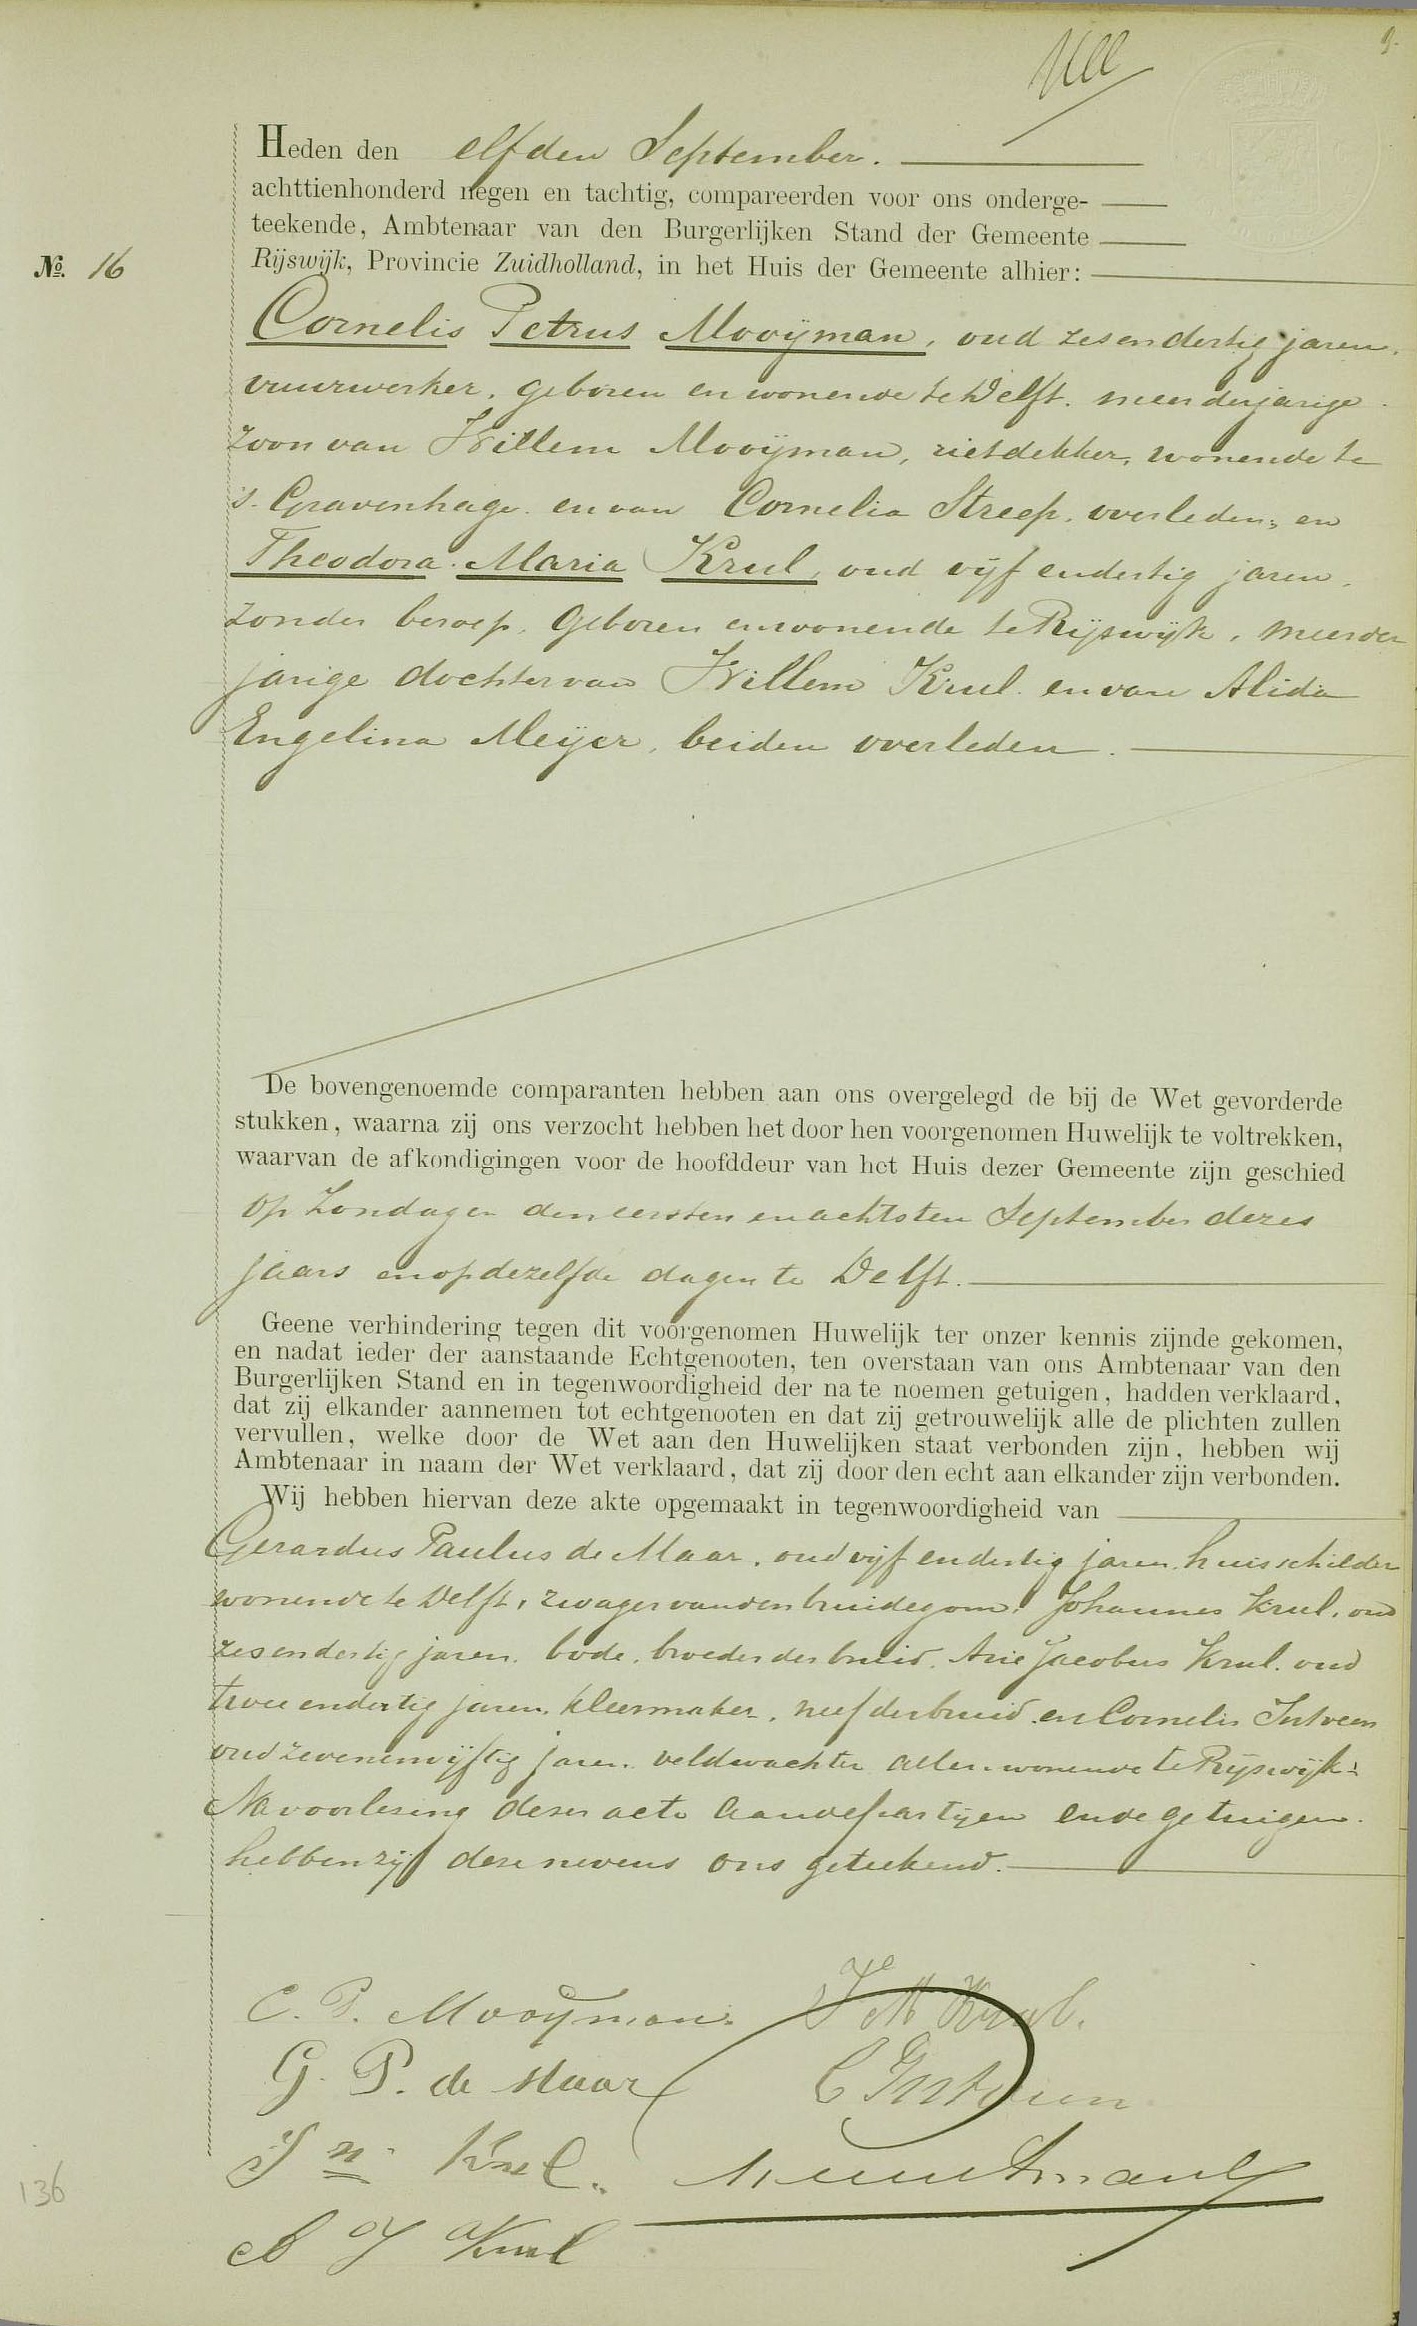 9.
Heden den elfden September.
achttienhonderd negen en tachtig, compareerden voor ons onderge-
teekende, Ambtenaar van den Burgerlijken Stand der Gemeente
Nº. 16
Rijswijk, Provincie Zuidholland, in het Huis der Gemeente alhier:
Cornelis Petrus Mooijman, oud zesendertig jaren,
vuurwerker, geboren en wonende te Delft, meerderjarige
zoon van Willem Mooijman, rietdekker, wonende te
's Gravenhage en van Cornelia Streep, overleden; en
Theodora Maria Krul, oud vijf endertig jaren,
zonder beroep, geboren en wonende te Rijswijk, meerder
jarige dochter van Willem Krul en van Alida
Engelina Meijer, beiden overleden.
De bovengenoemde comparanten hebben aan ons overgelegd de bij de Wet gevorderde
stukken, waarna zij ons verzocht hebben het door hen voorgenomen Huwelijk te voltrekken,
waarvan de afkondigingen voor de hoofddeur van het Huis dezer Gemeente zijn geschied
op Zondagen den eersten en achtsten September dezes
jaars en op dezelfde dagen te Delft.
Geene verhindering tegen dit voorgenomen Huwelijk ter onzer kennis zijnde gekomen,
en nadat ieder der aanstaande Echtgenooten, ten overstaan van ons Ambtenaar van den
Burgerlijken Stand en in tegenwoordigheid der na te noemen getuigen, hadden verklaard,
dat zij elkander aannemen tot echtgenooten en dat zij getrouwelijk alle de plichten zullen
vervullen, welke door de Wet aan den Huwelijken staat verbonden zijn, hebben wij
Ambtenaar in naam der Wet verklaard, dat zij door den echt aan elkander zijn verbonden.
Wij hebben hiervan deze akte opgemaakt in tegenwoordigheid van
Gerardus Paulus de Maar, oud vijf endertig jaren, huisschilder
wonende te Delft, zwager van den bruidegom; Johannes Krul, oud
zesendertig jaren, bode, broeder der bruid, Arie Jacobus Krul, oud
twee endertig jaren, kleermaker, neef der bruid en Cornelis Intveen
oud zevenenvijftig jaren, veldwachter allen wonende te Rijswijk.
Na voorlezing dezer acte aan de partijen en de getuigen
hebben zij deze nevens ons geteekend.
C. P. Mooijman. T M Krul.
G. P. de Maar C Intveen
Jn Krul.
A J Krul
136